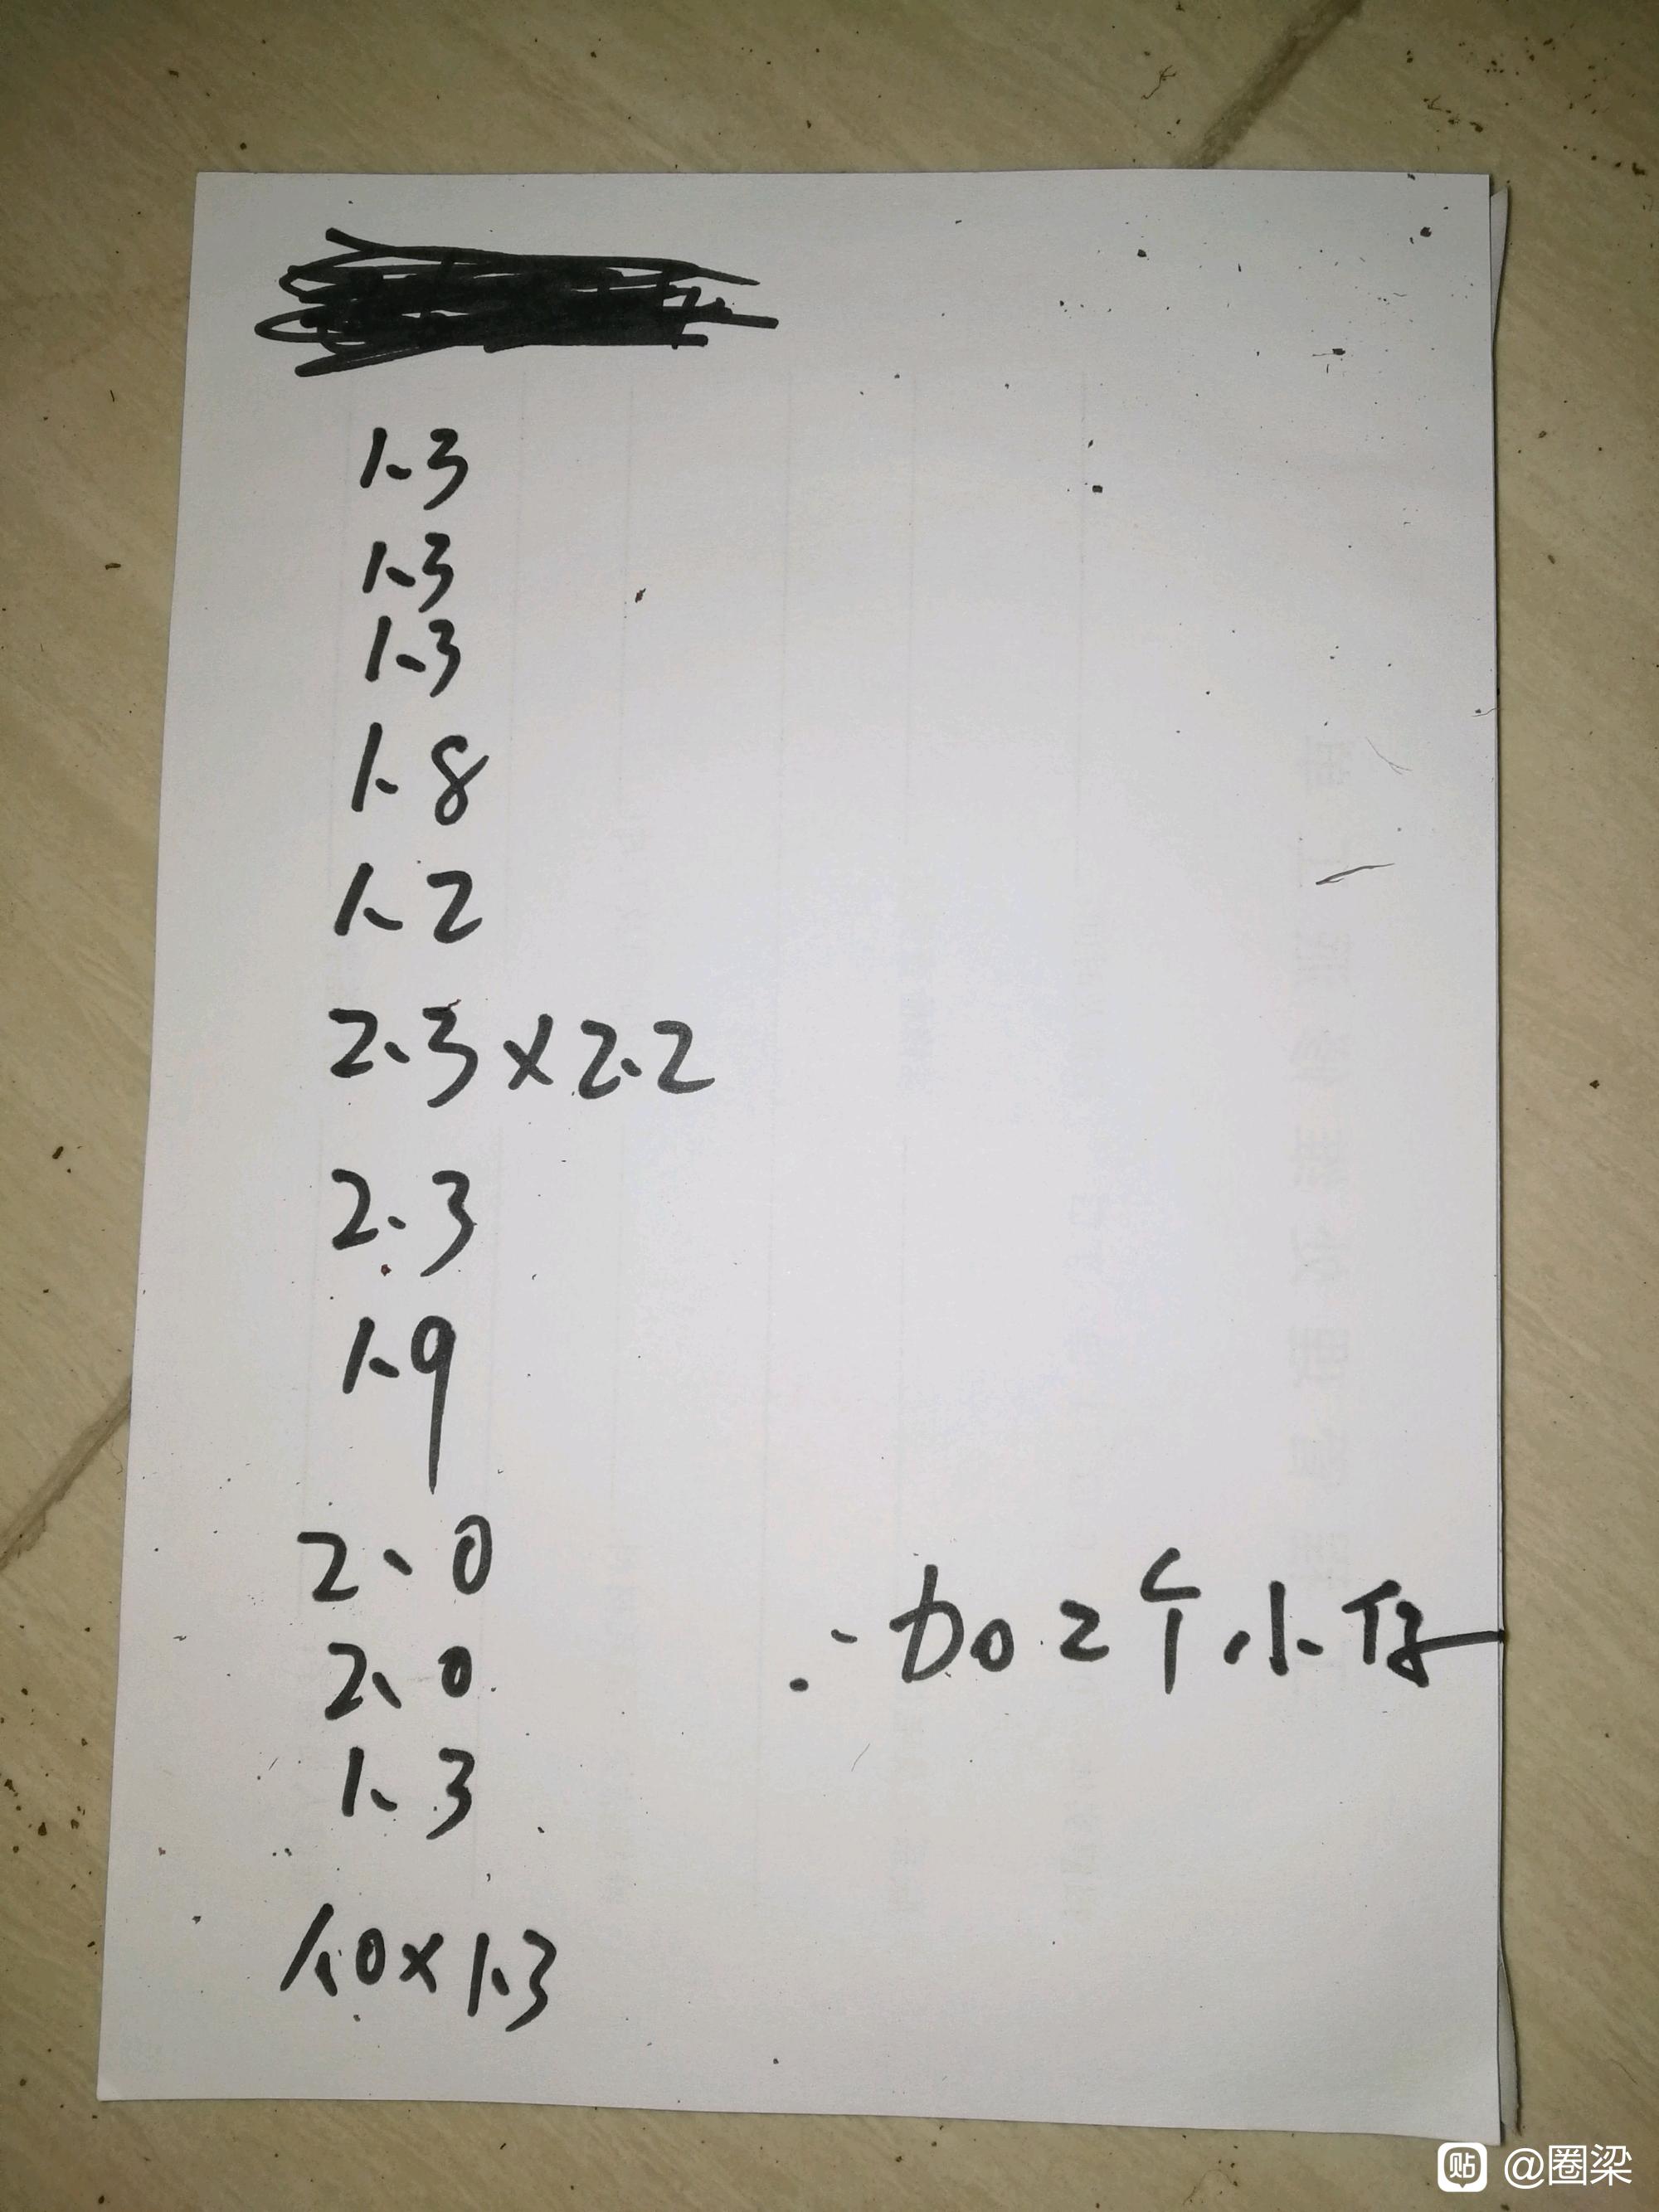 1.3
1.3
1.3
1.8
1.2
2.3×2.2
2.3
1.9
2.0
2.0
∴加2个小仔
1.3
1.0×1.3
贴 @圈梁